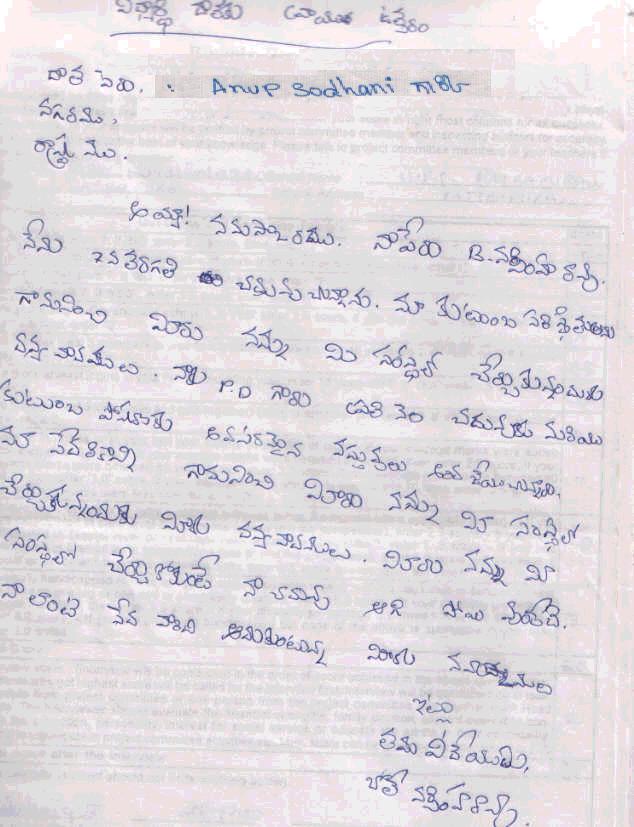 విద్యార్థి దాతకు వ్రాయు ఉత్తరం
దాత పేరు. : Anup Sodhani గారు
నగరము,
రాష్ట్రము.
అయ్యా! నమస్కారము. నా పేరు B. నర్సింహ రావు.
నేను 7వ తరగతి చదువుచున్నాను. మా కుటుంబ పరిస్థితులు
గమనించి మీరు నన్ను మీ సంస్థలో చేర్చుకున్నందుకు
ధన్యవాదములు. మాకు P.D గారు ప్రతి నెల చదువుకు మరియు
కుటుంబ పోషణకు అవసరమైన వస్తువులు అంద జేయుచున్నారు.
మా పేదరికాన్ని గమనించి మీరు నన్ను మీ సంస్థలో
చేర్చుకున్నందుకు మీకు ధన్యవాదములు. మీరు నన్ను మీ
సంస్థలో చేర్చుకోకుంటే నా చదువు ఆగి పోయి వుండేది.
నా లాంటి పేద వారిని ఆదుకుంటున్న మీకు నమస్కారములు
ఇట్లు
తమ విధేయుడు,
నర్సింహరావు.